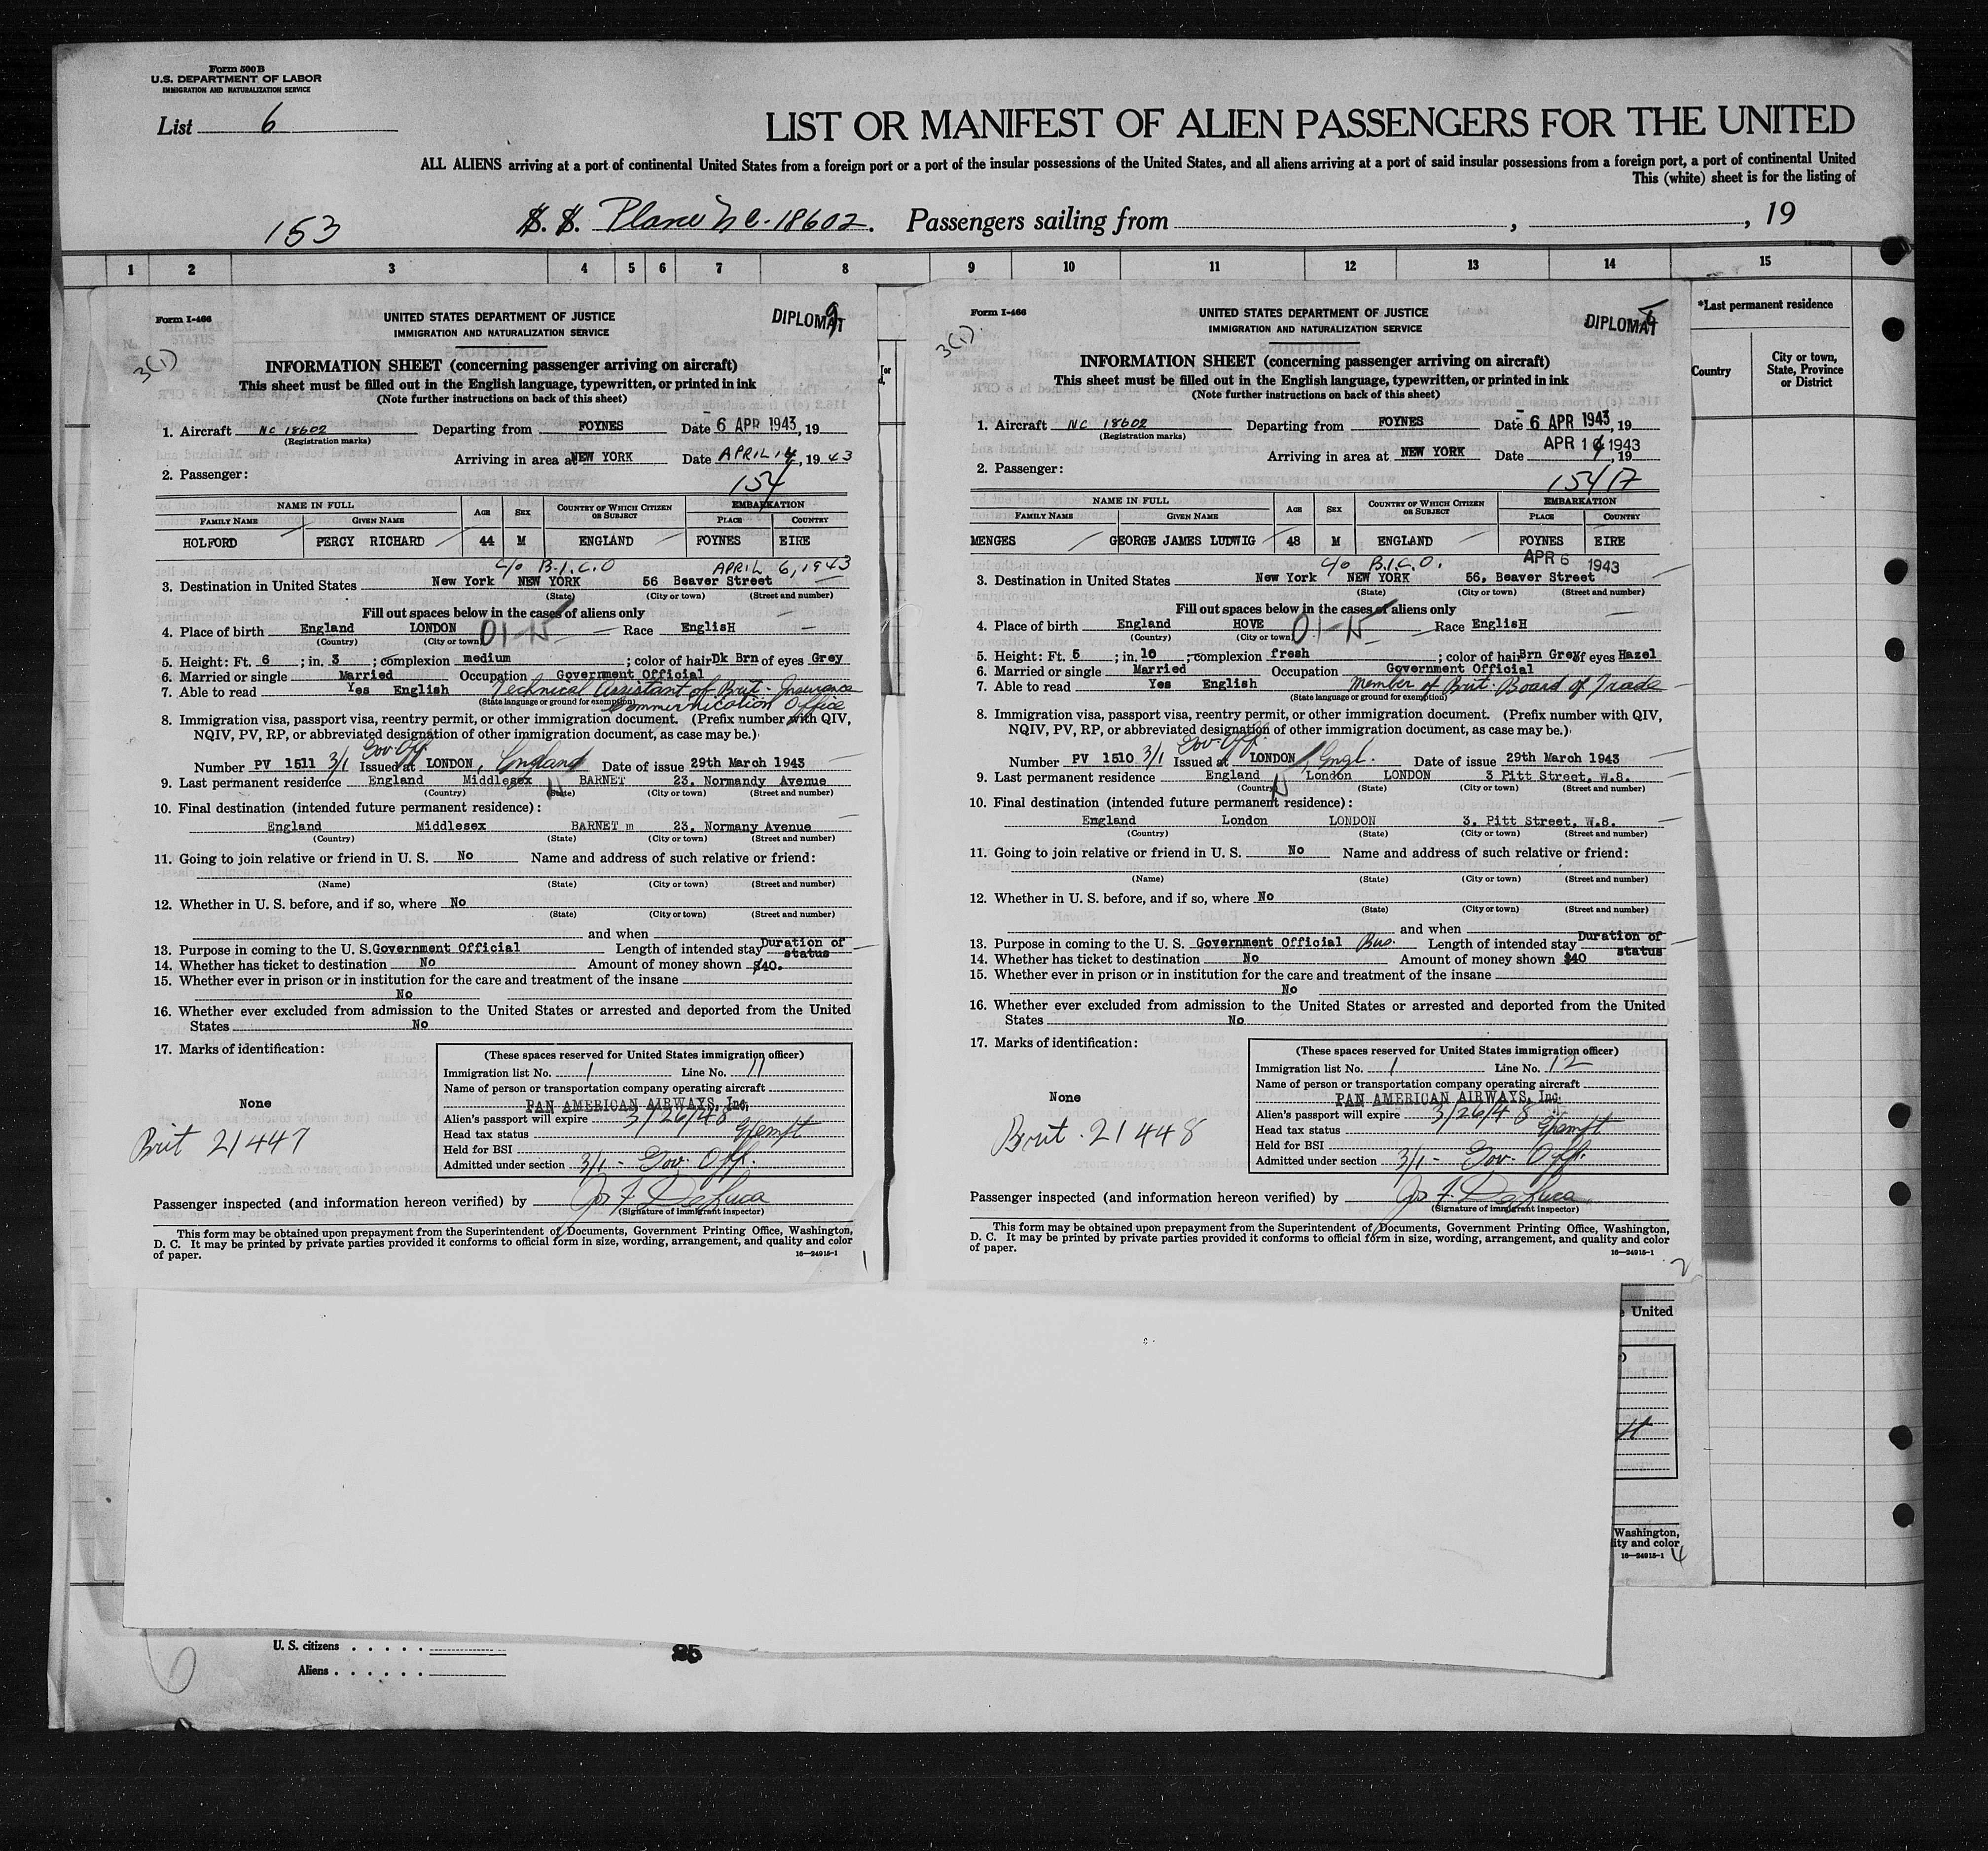 Form 500B
U.S. DEPARTMENT OF LABOR
IMMIGRATION AND NATURALIZATION SERVICE
List 6
LIST OR MANIFEST OF ALIEN PASSENGERS FOR THE UNITED
ALL ALIENS arriving at a port of continental United States from a foreign port or a port of the insular possessions of the United States, and all aliens arriving at a port of said insular possessions from a foreign port, a port of continental United
This (white) sheet is for the listing of
153 S. S. Plane NC-18602. Passengers sailing from , , 19
1 2 3 4 5 6 7 8 9 10 11 12 13 14 15
*Last permanent residence
Country
City or town, State, Province or District
Form I-466
UNITED STATES DEPARTMENT OF JUSTICE
IMMIGRATION AND NATURALIZATION SERVICE
DIPLOMAT
9
3(1)
INFORMATION SHEET (concerning passenger arriving on aircraft)
This sheet must be filled out in the English language, typewritten, or printed in ink
(Note further instructions on back of this sheet)
1. Aircraft NC 18602 Departing from FOYNES Date 6 APR 1943, 19
(Registration marks)
Arriving in area at NEW YORK Date APRIL 14, 19 43
2. Passenger: 154
NAME IN FULL AGE SEX COUNTRY OF WHICH CITIZEN OR SUBJECT EMBARKATION
FAMILY NAME GIVEN NAME PLACE COUNTRY
HOLFORD PERCY RICHARD 44 M ENGLAND FOYNES EIRE
c/o B.I.C.O APRIL 6, 1943
3. Destination in United States New York NEW YORK 56 Beaver Street
(State) (City or town) (Street and number)
Fill out spaces below in the cases of aliens only
4. Place of birth England LONDON 01-15 Race EnglisH
(Country) (City or town)
5. Height: Ft. 6 ; in. 3 ; complexion medium ; color of hair Dk Brn of eyes Grey
6. Married or single Married Occupation Government Official
7. Able to read Yes English Technical Assistant of Brit. Insurance
(State language or ground for exemption) Communication Office
8. Immigration visa, passport visa, reentry permit, or other immigration document. (Prefix number with QIV,
NQIV, PV, RP, or abbreviated designation of other immigration document, as case may be.)
Gov. Off.
Number PV 1511 3/1 Issued at LONDON, England Date of issue 29th March 1943
9. Last permanent residence England Middlesex BARNET 23. Normandy Avenue
(Country) (State) (City or town) (Street and number)
10. Final destination (intended future permanent residence):
England Middlesex BARNET m 23. Normany Avenue
(Country) (State) (City or town) (Street and number)
11. Going to join relative or friend in U. S. No Name and address of such relative or friend:
(Name) (State) (City or town) (Street and number)
12. Whether in U. S. before, and if so, where No
(State) (City or town) (Street and number)
and when
13. Purpose in coming to the U. S. Government Official Length of intended stay Duration of status
14. Whether has ticket to destination No Amount of money shown $40.
15. Whether ever in prison or in institution for the care and treatment of the insane
No
16. Whether ever excluded from admission to the United States or arrested and deported from the United
States No
17. Marks of identification:
None
Brit 21447
(These spaces reserved for United States immigration officer)
Immigration list No. 1 Line No. 11
Name of person or transportation company operating aircraft
PAN AMERICAN AIRWAYS, Inc.
Alien's passport will expire 3/26/48
Head tax status Exempt
Held for BSI
Admitted under section 3/1 - Gov. Off.
Passenger inspected (and information hereon verified) by Jos F. DeLuca
(Signature of immigrant inspector)
This form may be obtained upon prepayment from the Superintendent of Documents, Government Printing Office, Washington,
D. C. It may be printed by private parties provided it conforms to official form in size, wording, arrangement, and quality and color
of paper. 16—24915-1
1
Form I-466
UNITED STATES DEPARTMENT OF JUSTICE
IMMIGRATION AND NATURALIZATION SERVICE
DIPLOMAT
3(1)
INFORMATION SHEET (concerning passenger arriving on aircraft)
This sheet must be filled out in the English language, typewritten, or printed in ink
(Note further instructions on back of this sheet)
1. Aircraft NC 18602 Departing from FOYNES Date 6 APR 1943, 19
(Registration marks)
Arriving in area at NEW YORK Date APR 14 1943, 19
2. Passenger: 154 17
NAME IN FULL AGE SEX COUNTRY OF WHICH CITIZEN OR SUBJECT EMBARKATION
FAMILY NAME GIVEN NAME PLACE COUNTRY
MENGES GEORGE JAMES LUDWIG 48 M ENGLAND FOYNES EIRE
c/o B.I.C.O. APR 6 1943
3. Destination in United States New York NEW YORK 56, Beaver Street
(State) (City or town) (Street and number)
Fill out spaces below in the cases of aliens only
4. Place of birth England HOVE 01-15 Race EnglisH
(Country) (City or town)
5. Height: Ft. 5 ; in. 10 ; complexion fresh ; color of hair Brn Grey of eyes Hazel
6. Married or single Married Occupation Government Official
7. Able to read Yes English Member of Brit. Board of Trade
(State language or ground for exemption)
8. Immigration visa, passport visa, reentry permit, or other immigration document. (Prefix number with QIV,
NQIV, PV, RP, or abbreviated designation of other immigration document, as case may be.)
Gov. Off.
Number PV 1510 3/1 Issued at LONDON, Engl. Date of issue 29th March 1943
9. Last permanent residence England London LONDON 3 Pitt Street, W.8.
(Country) (State) (City or town) (Street and number)
10. Final destination (intended future permanent residence):
England London LONDON 3. Pitt Street, W.8.
(Country) (State) (City or town) (Street and number)
11. Going to join relative or friend in U. S. No Name and address of such relative or friend:
(Name) (State) (City or town) (Street and number)
12. Whether in U. S. before, and if so, where No
(State) (City or town) (Street and number)
and when
13. Purpose in coming to the U. S. Government Official Bus. Length of intended stay Duration of status
14. Whether has ticket to destination No Amount of money shown $40
15. Whether ever in prison or in institution for the care and treatment of the insane
No
16. Whether ever excluded from admission to the United States or arrested and deported from the United
States No
17. Marks of identification:
None
Brit. 21448
(These spaces reserved for United States immigration officer)
Immigration list No. 1 Line No. 12
Name of person or transportation company operating aircraft
PAN AMERICAN AIRWAYS, Inc.
Alien's passport will expire 3/26/48
Head tax status Exempt
Held for BSI
Admitted under section 3/1 - Gov. Off.
Passenger inspected (and information hereon verified) by Jos F. DeLuca
(Signature of immigrant inspector)
This form may be obtained upon prepayment from the Superintendent of Documents, Government Printing Office, Washington,
D. C. It may be printed by private parties provided it conforms to official form in size, wording, arrangement, and quality and color
of paper. 16—24915-1
2
United
Washington,
ity and color
16—24915-1 4
U. S. citizens
Aliens
6